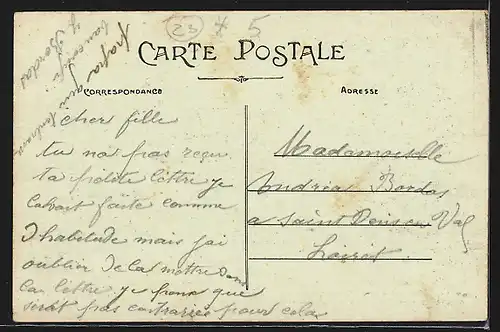 23 * 5
CARTE POSTALE
CORRESPONDANCE
ADRESSE
cher fille
tu na pas reçu
ta petite lettre je
lavait faite comme
dhabitude mais jai
oublier de la mettre dans
la lettre je pense que
serat pas contrarrée pour cela
papa qui
Bordas
Mademoiselle
Andréa Bordas
a Saint Denis en Val
Loiret